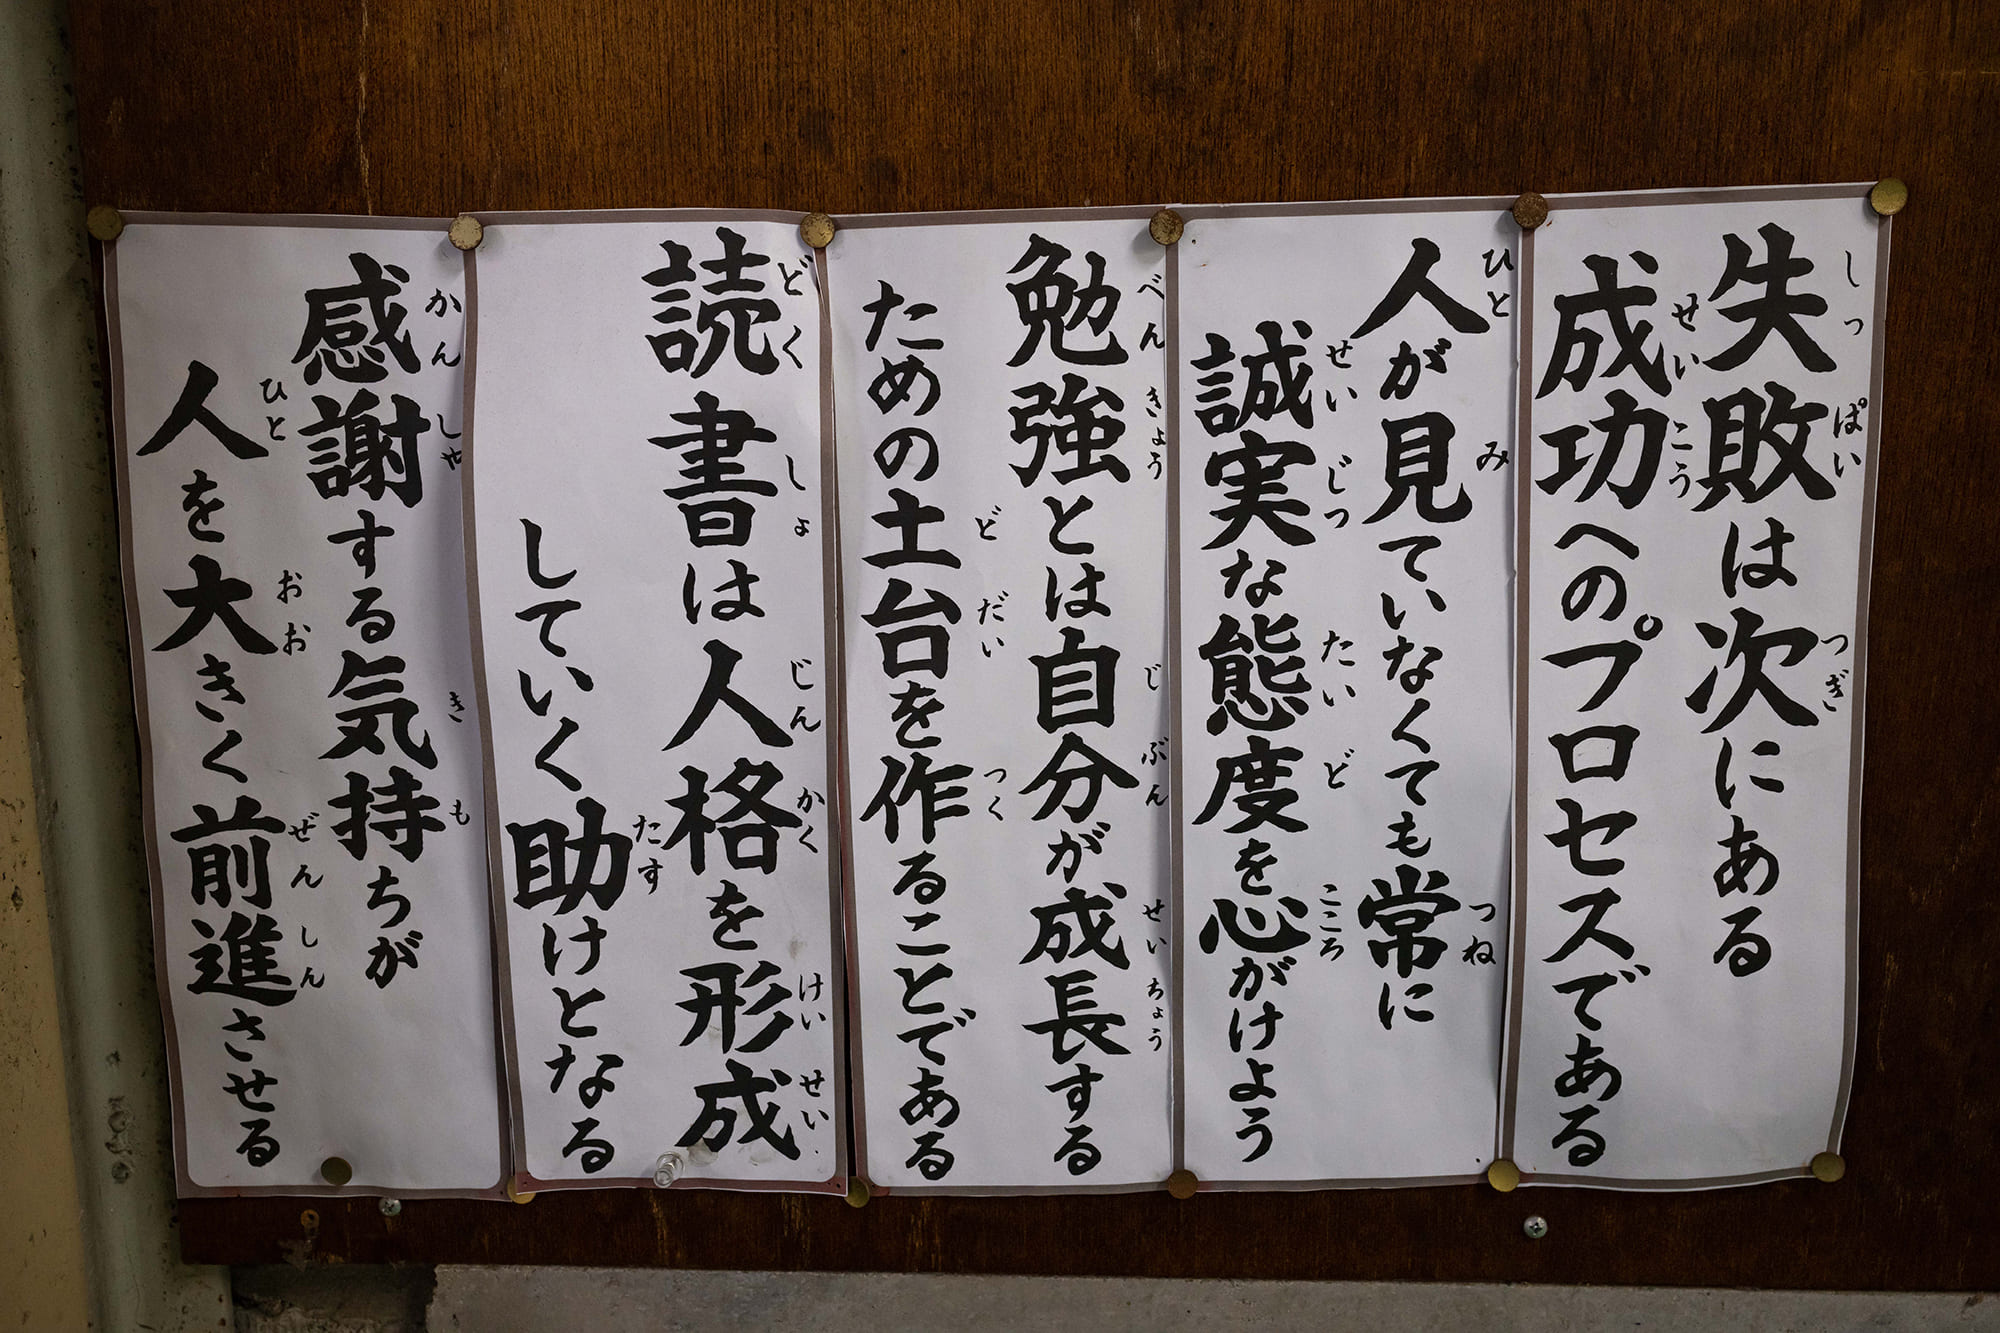 失敗は次にある
成功へのプロセスである
人が見ていなくても常に
誠実な態度を心がけよう
勉強とは自分が成長する
ための土台を作ることである
読書は人格を形成
していく助けとなる
感謝する気持ちが
人を大きく前進させる